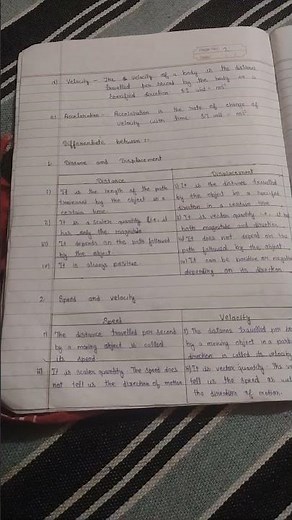 Velocity - The velocity of a body is the distance
travelled per second by the body in a
specified direction. SI unit = ms⁻¹
Acceleration - Acceleration is the rate of change of
velocity with time. SI unit = ms⁻²
Differentiate between :-
1. Distance and Displacement
Distance
i) It is the length of the path
traversed by the object in a
certain time
ii) It is a scalar quantity i.e. it
has only the magnitude
iii) It depends on the path followed
by the object.
iv) It is always positive.
Displacement
i) It is the distance travelled
by the object in a specified
direction in a certain time
ii) It is vector quantity i.e. it has
both magnitude and direction
iii) It does not depend on the
path followed by the object
iv) It can be positive or negative
depending on its direction
2. Speed and velocity
Speed
i) The distance travelled per second
by a moving object is called
its speed
ii) It is scalar quantity. The speed does
not tell us the direction of motion.
Velocity
i) The distance travelled per
by a moving object in a
direction is called its velocity
ii) It is vector quantity.
tell us the speed as
the direction of motion.